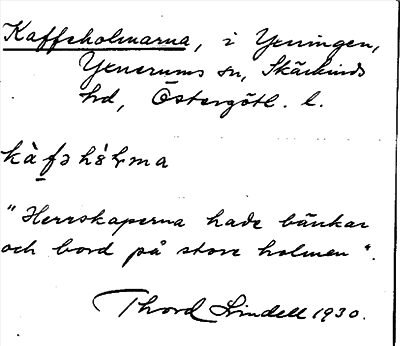 Kaffeholmarna, i Yxningen,
Yxnerums sn, Skärkinds
hd, Östergötl. l.
kàfəhɷ̀lma
"Herrskaperna hade bänkar
och bord på store holmen".
Thord Lindell 1930.